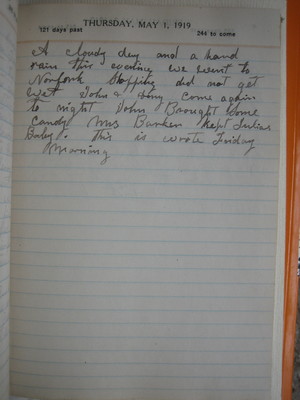 THURSDAY, MAY 1, 1919
121 days past 244 to come
A cloudy day and a hard
rain this evening we went to
Norfork Shopping did not get
Wet John & Hiny Come again
to night John Brought Some
candy Mrs Barker Kept Julias
Baby. This is wrote Friday
Morning